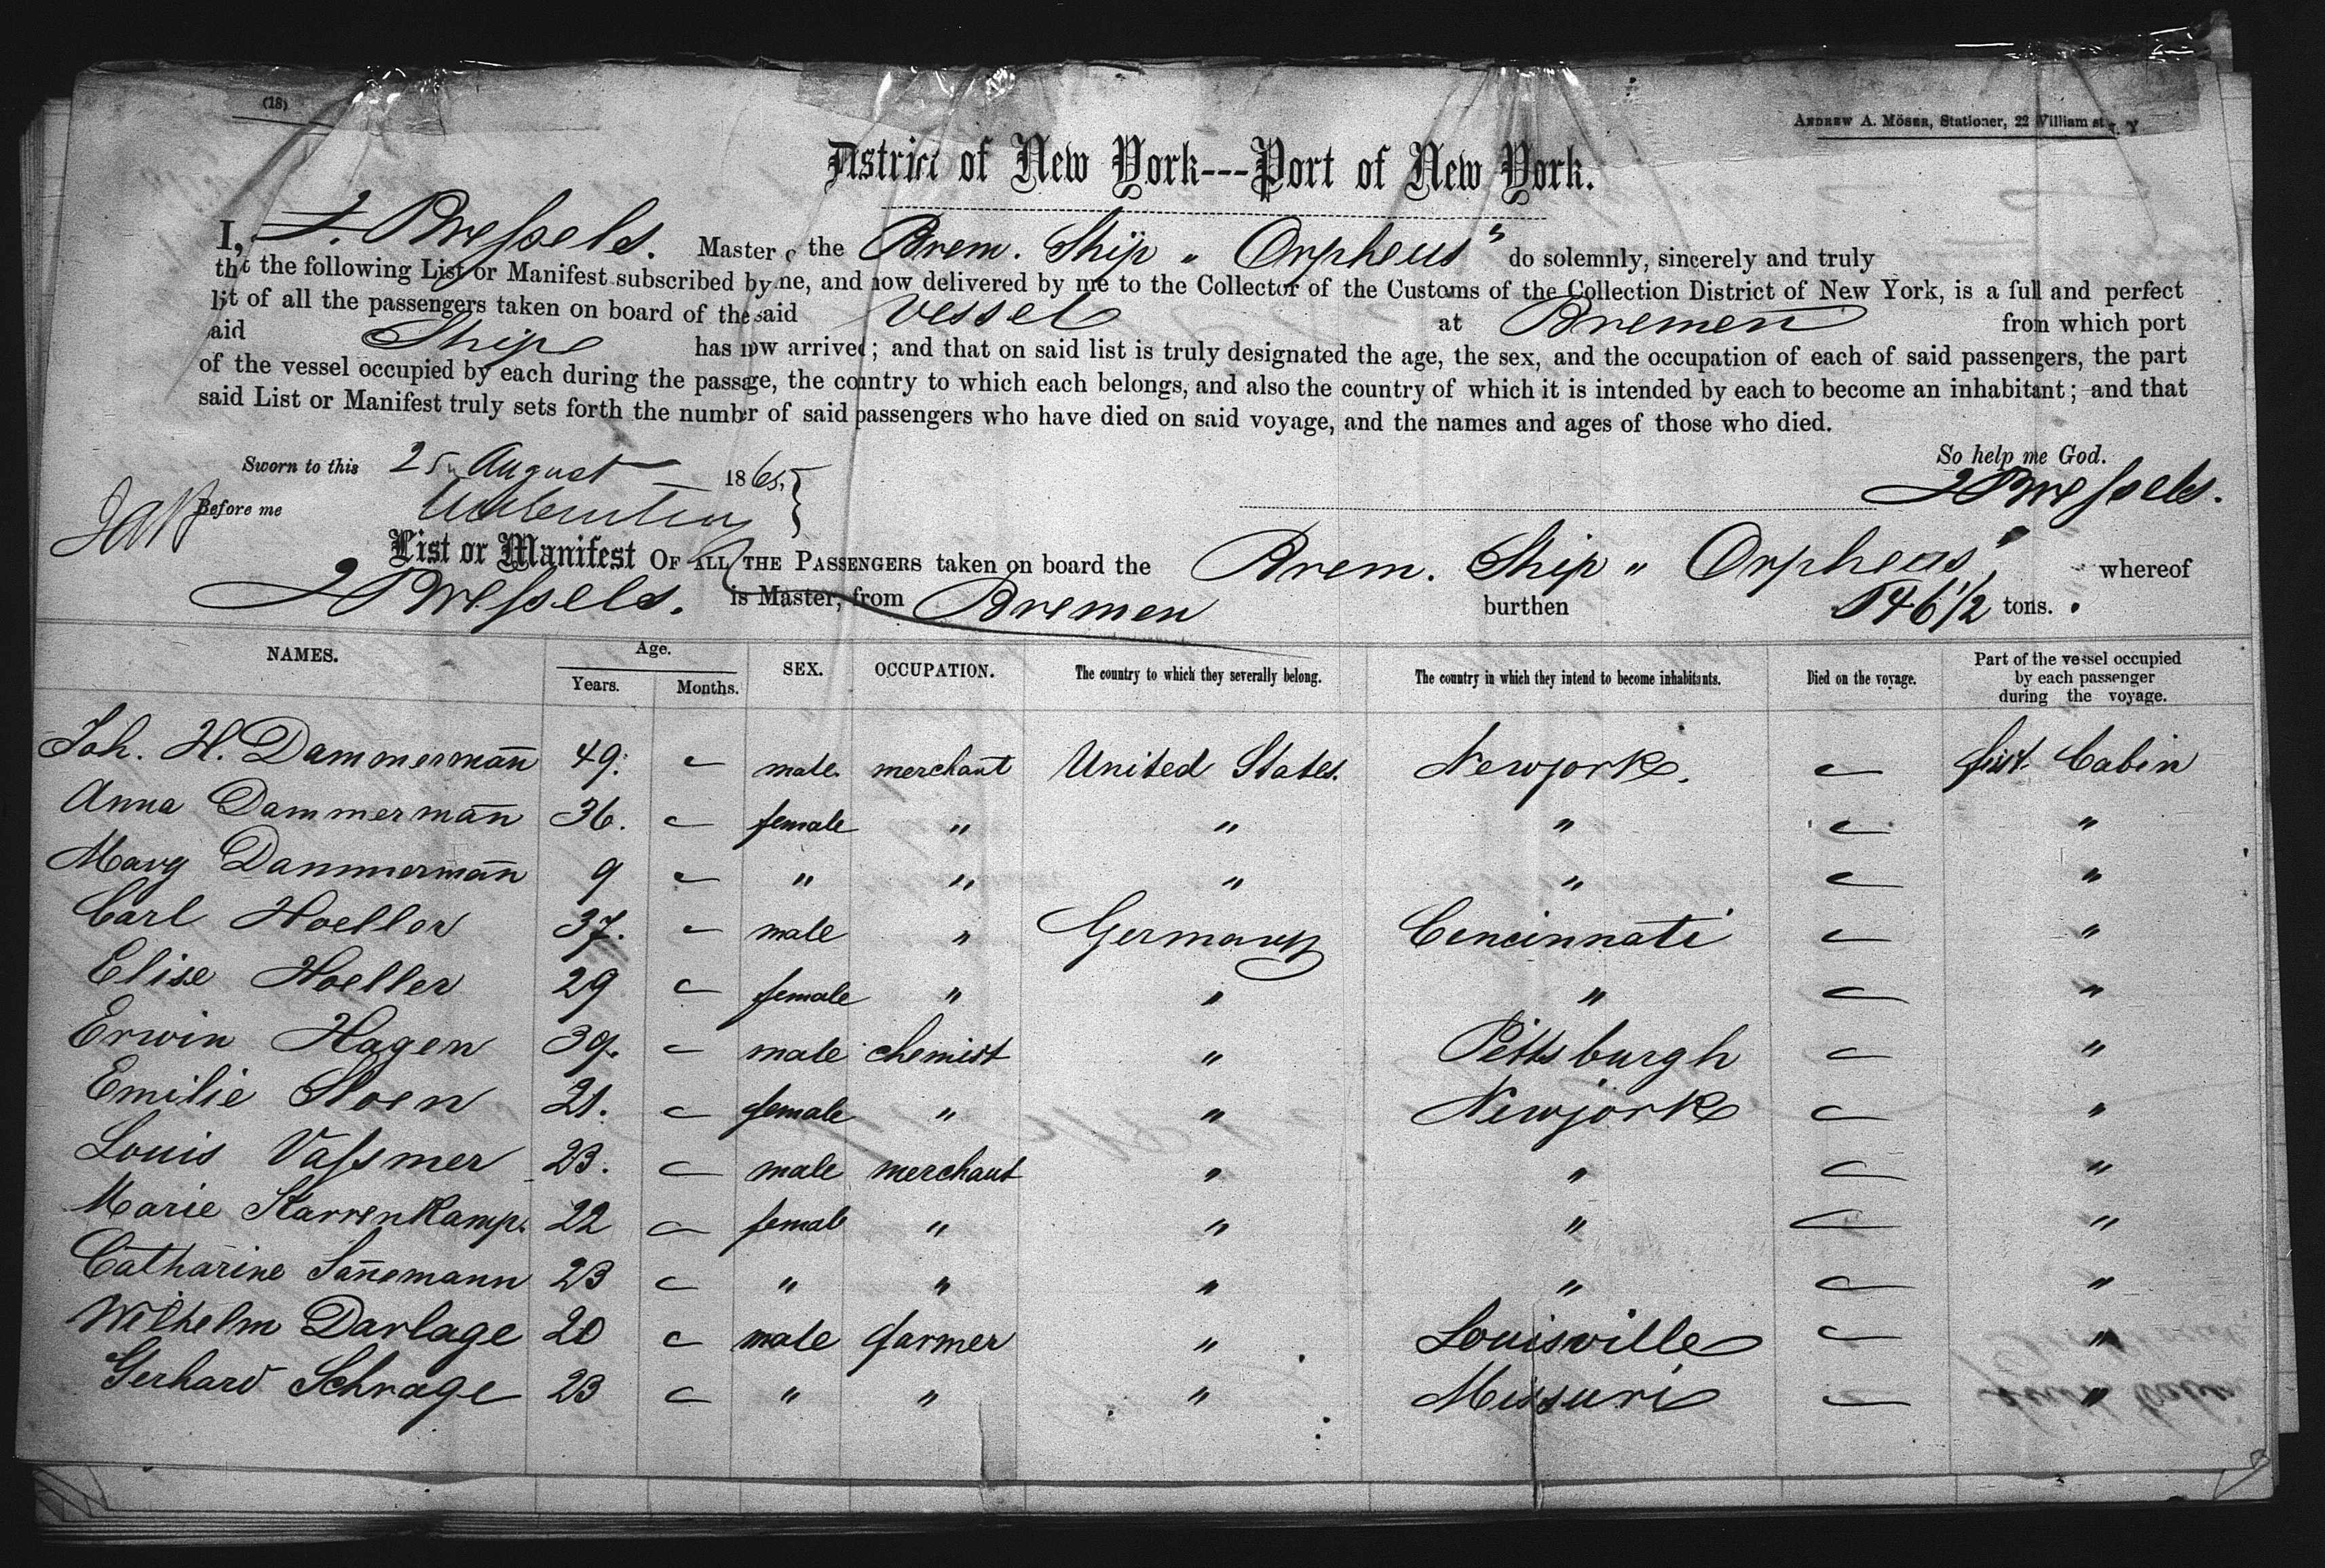 (18)
ANDREW A. MÖSER, Stationer, 22 William st. N. Y
District of New York---Port of New York.
I, Wessels. Master of the Brem. Ship "Orpheus" do solemnly, sincerely and truly
that the following List or Manifest subscribed by me, and now delivered by me to the Collector of the Customs of the Collection District of New York, is a full and perfect
list of all the passengers taken on board of the said vessel at Bremen from which port
said Ship has now arrived; and that on said list is truly designated the age, the sex, and the occupation of each of said passengers, the part
of the vessel occupied by each during the passage, the country to which each belongs, and also the country of which it is intended by each to become an inhabitant; and that
said List or Manifest truly sets forth the number of said passengers who have died on said voyage, and the names and ages of those who died.
So help me God.
Sworn to this 25 August 1865.
Wessels.
Before me
List or Manifest OF ALL THE PASSENGERS taken on board the Brem. Ship "Orpheus" whereof
Wessels. is Master, from Bremen burthen 546 1/2 tons.
NAMES. Age. Years. Months. SEX. OCCUPATION. The country to which they severally belong. The country in which they intend to become inhabitants. Died on the voyage. Part of the vessel occupied by each passenger during the voyage.
Joh. H. Dammerman̄ 49. – male. merchant United States. Newjork. – first Cabin
Anna Dammerman̄ 36. – female " " " – "
Marg Dammerman̄ 9 – " " " " – "
Carl Hoeller 37. – male " Germany Cincinnati – "
Elise Hoeller 29 – female " " " – "
Erwin Hagen 39. – male chemist " Pittsburgh – "
Emilie 21. – female " " Newjork – "
Louis Vassmer 23. – male merchant " " – "
Marie Starrenkamp. 22 – female " " " – "
Catharine San̄emann 23 – " " " " – "
Wilhelm Darlage 20 – male farmer " Louisville – "
Gerhard Schrage 23 – " " " Missuri – "